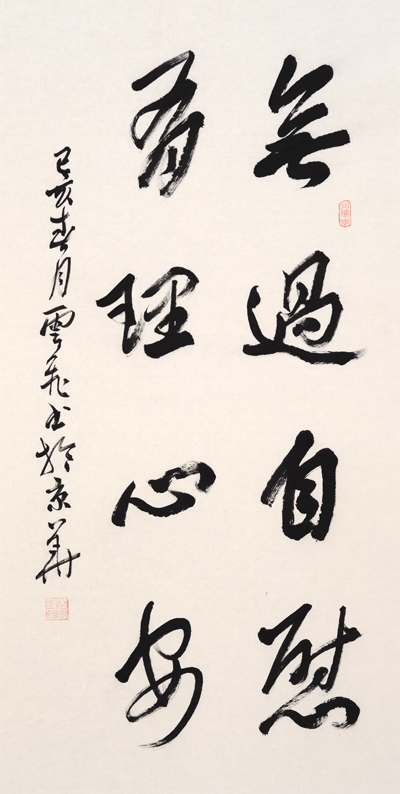 無過自慰
有理心安
己亥春月雲飛書於京華